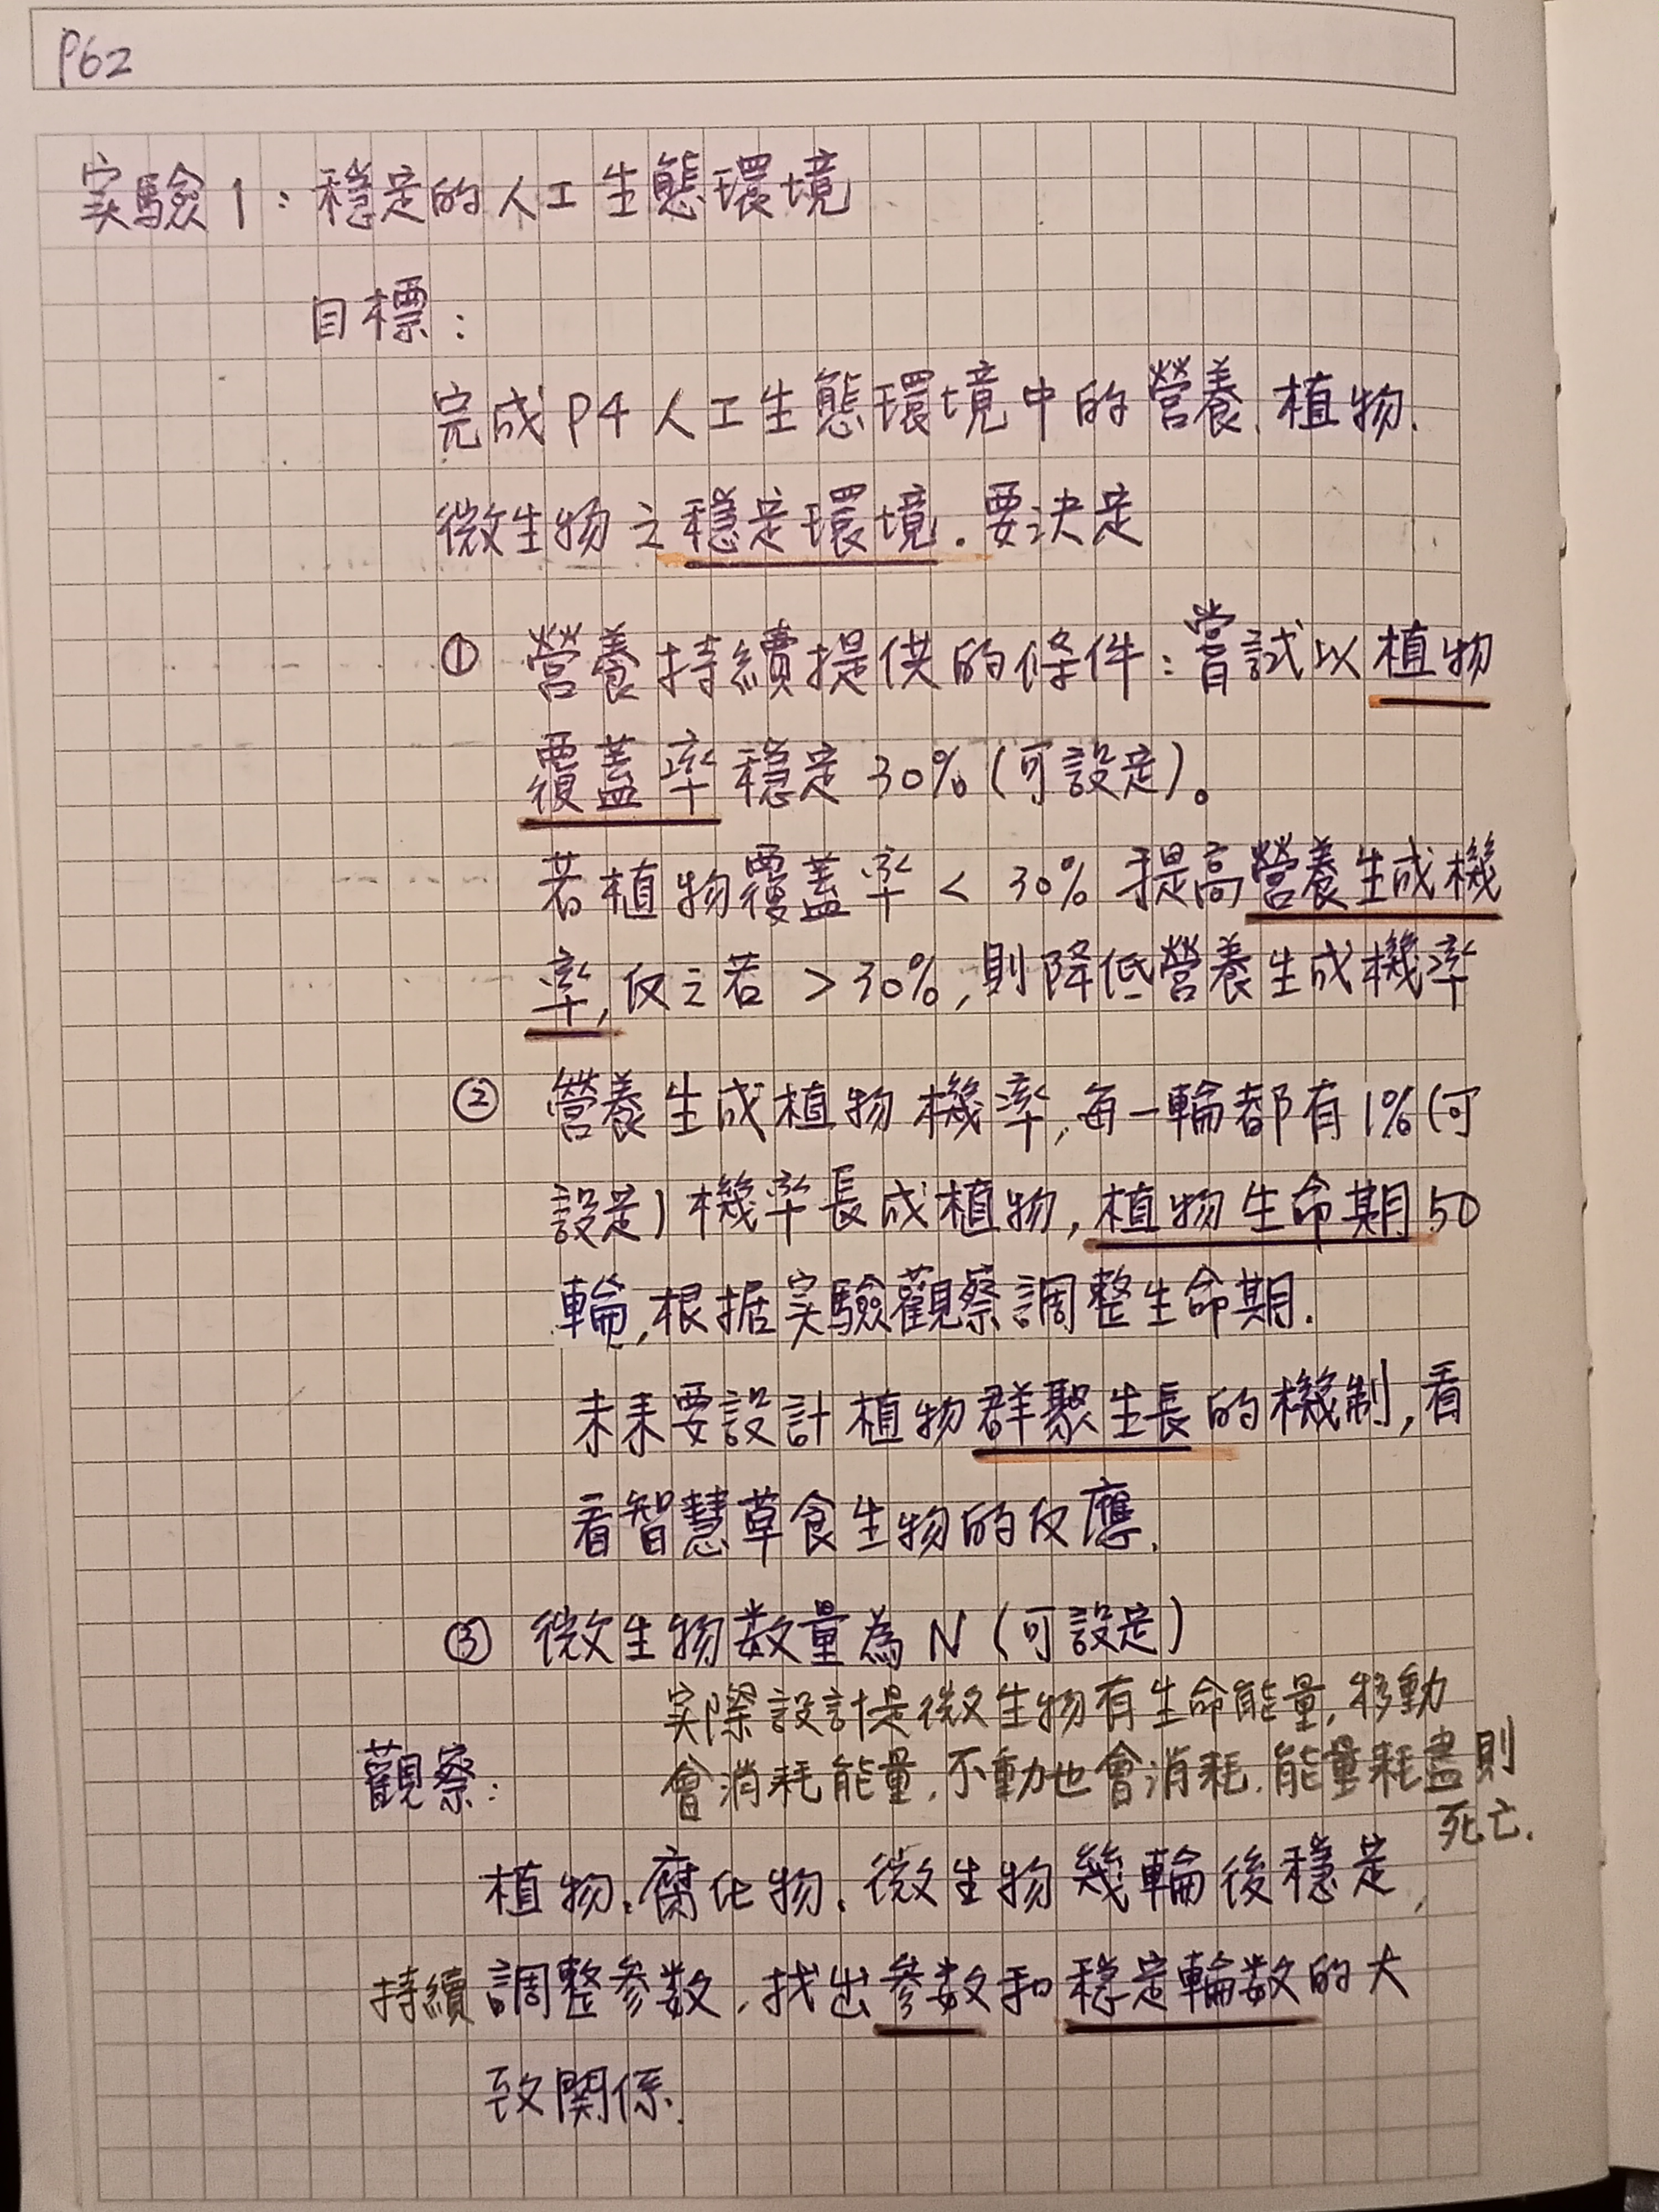 P62
実驗1：穩定的人工生態環境
目標：
完成P4人工生態環境中的營養、植物、
微生物之穩定環境．要決定
① 營養持續提供的條件：嘗試以植物
覆蓋率穩定30%(可設定)。
若植物覆蓋率 < 30% 提高營養生成機
率,反之若 >30%,則降低營養生成機率
② 營養生成植物機率,每一輪都有1%(可
設定)機率長成植物,植物生命期50
輪,根据実驗觀察調整生命期.
未来要設計植物群聚生長的機制,看
看智慧草食生物的反應.
③ 微生物数量為N(可設定)
実際設計是微生物有生命能量,移動
會消耗能量,不動也會消耗.能量耗盡則
死亡.
觀察：
植物、腐化物、微生物幾輪後穩定,
持續調整参数,找出參数和穩定輪数的大
致関係.